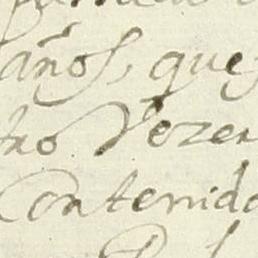 años, que
tro Vezen
Contenido